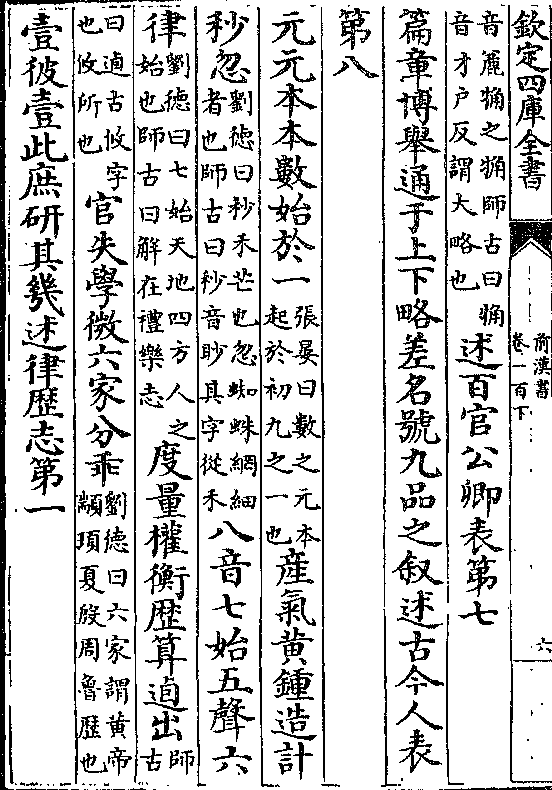 欽定四庫全書
前漢書
卷一百下
六
音麄觕之觕師古曰觕
音才户反謂大略也
述百官公卿表第七
篇章博舉通于上下略差名號九品之叙述古今人表
第八
元元本本數始於一
張晏曰數之元本
起於初九之一也
産氣黄鍾造計
秒忽
劉德曰秒禾芒也忽蜘蛛網細
者也師古曰秒音眇其字從禾
八音七始五聲六
律
劉德曰七始天地四方人之
始也師古曰解在禮樂志
度量權衡歴算逌出
師
古
曰逌古攸字
也攸所也
官失學微六家分乖
劉德曰六家謂黄帝
顓頊夏殷周魯歴也
壹彼壹此庶研其幾述律歴志第一